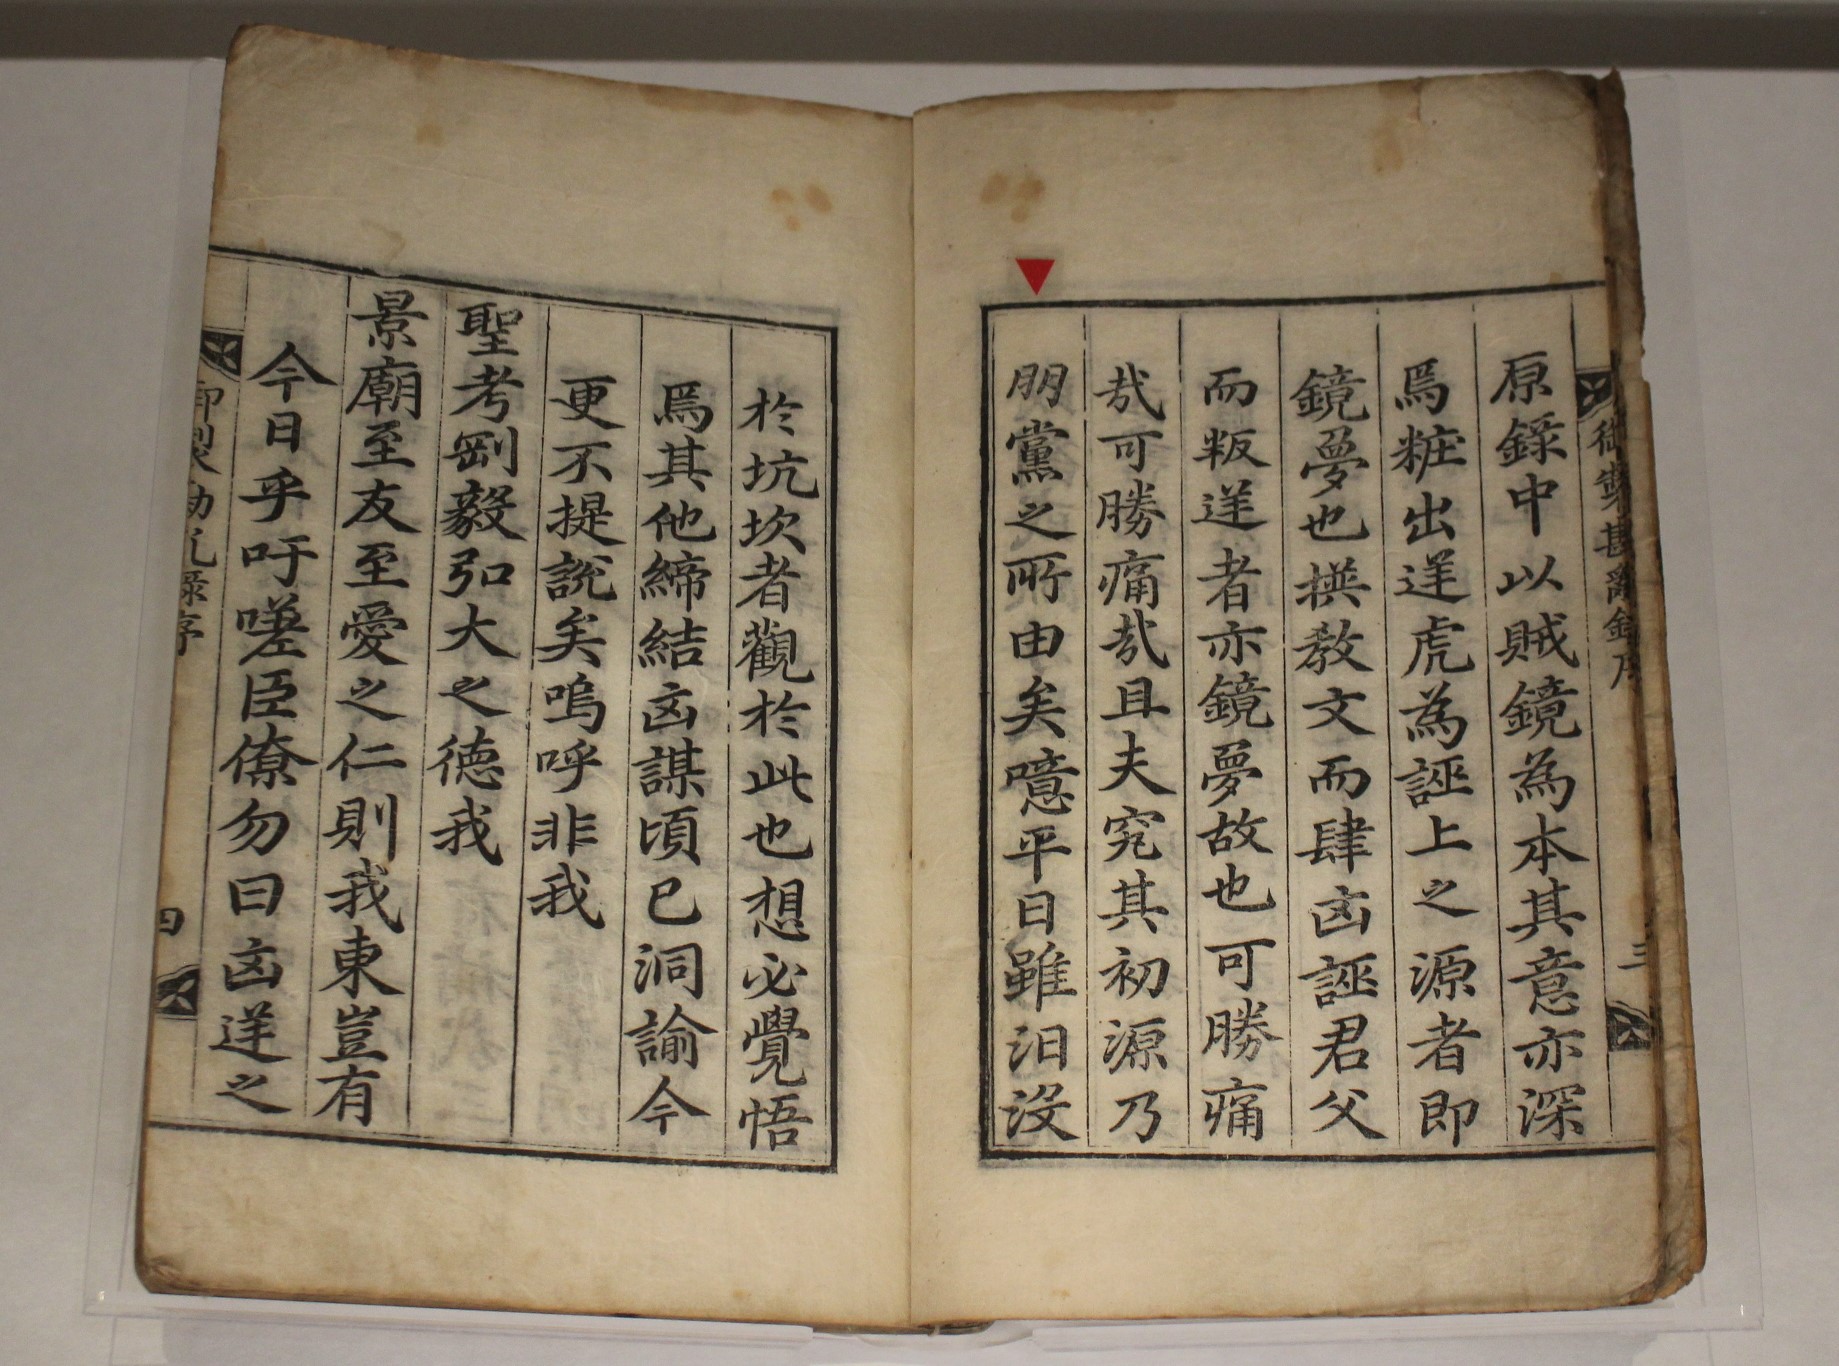 御製勘亂錄序
三
原錄中以賊鏡為本其意亦深
焉粧出逆虎為誣上之源者即
鏡夢也撰教文而肆凶誣君父
而叛逆者亦鏡夢故也可勝痛
哉可勝痛哉且夫究其初源乃
朋黨之所由矣噫平日雖汨沒
於坑坎者觀於此也想必覺悟
焉其他締結凶謀頃已洞諭今
更不提說矣嗚呼非我
聖考剛毅弘大之德我
景廟至友至愛之仁則我東豈有
今日乎吁嗟臣僚勿曰凶逆之
御製勘亂錄序
四